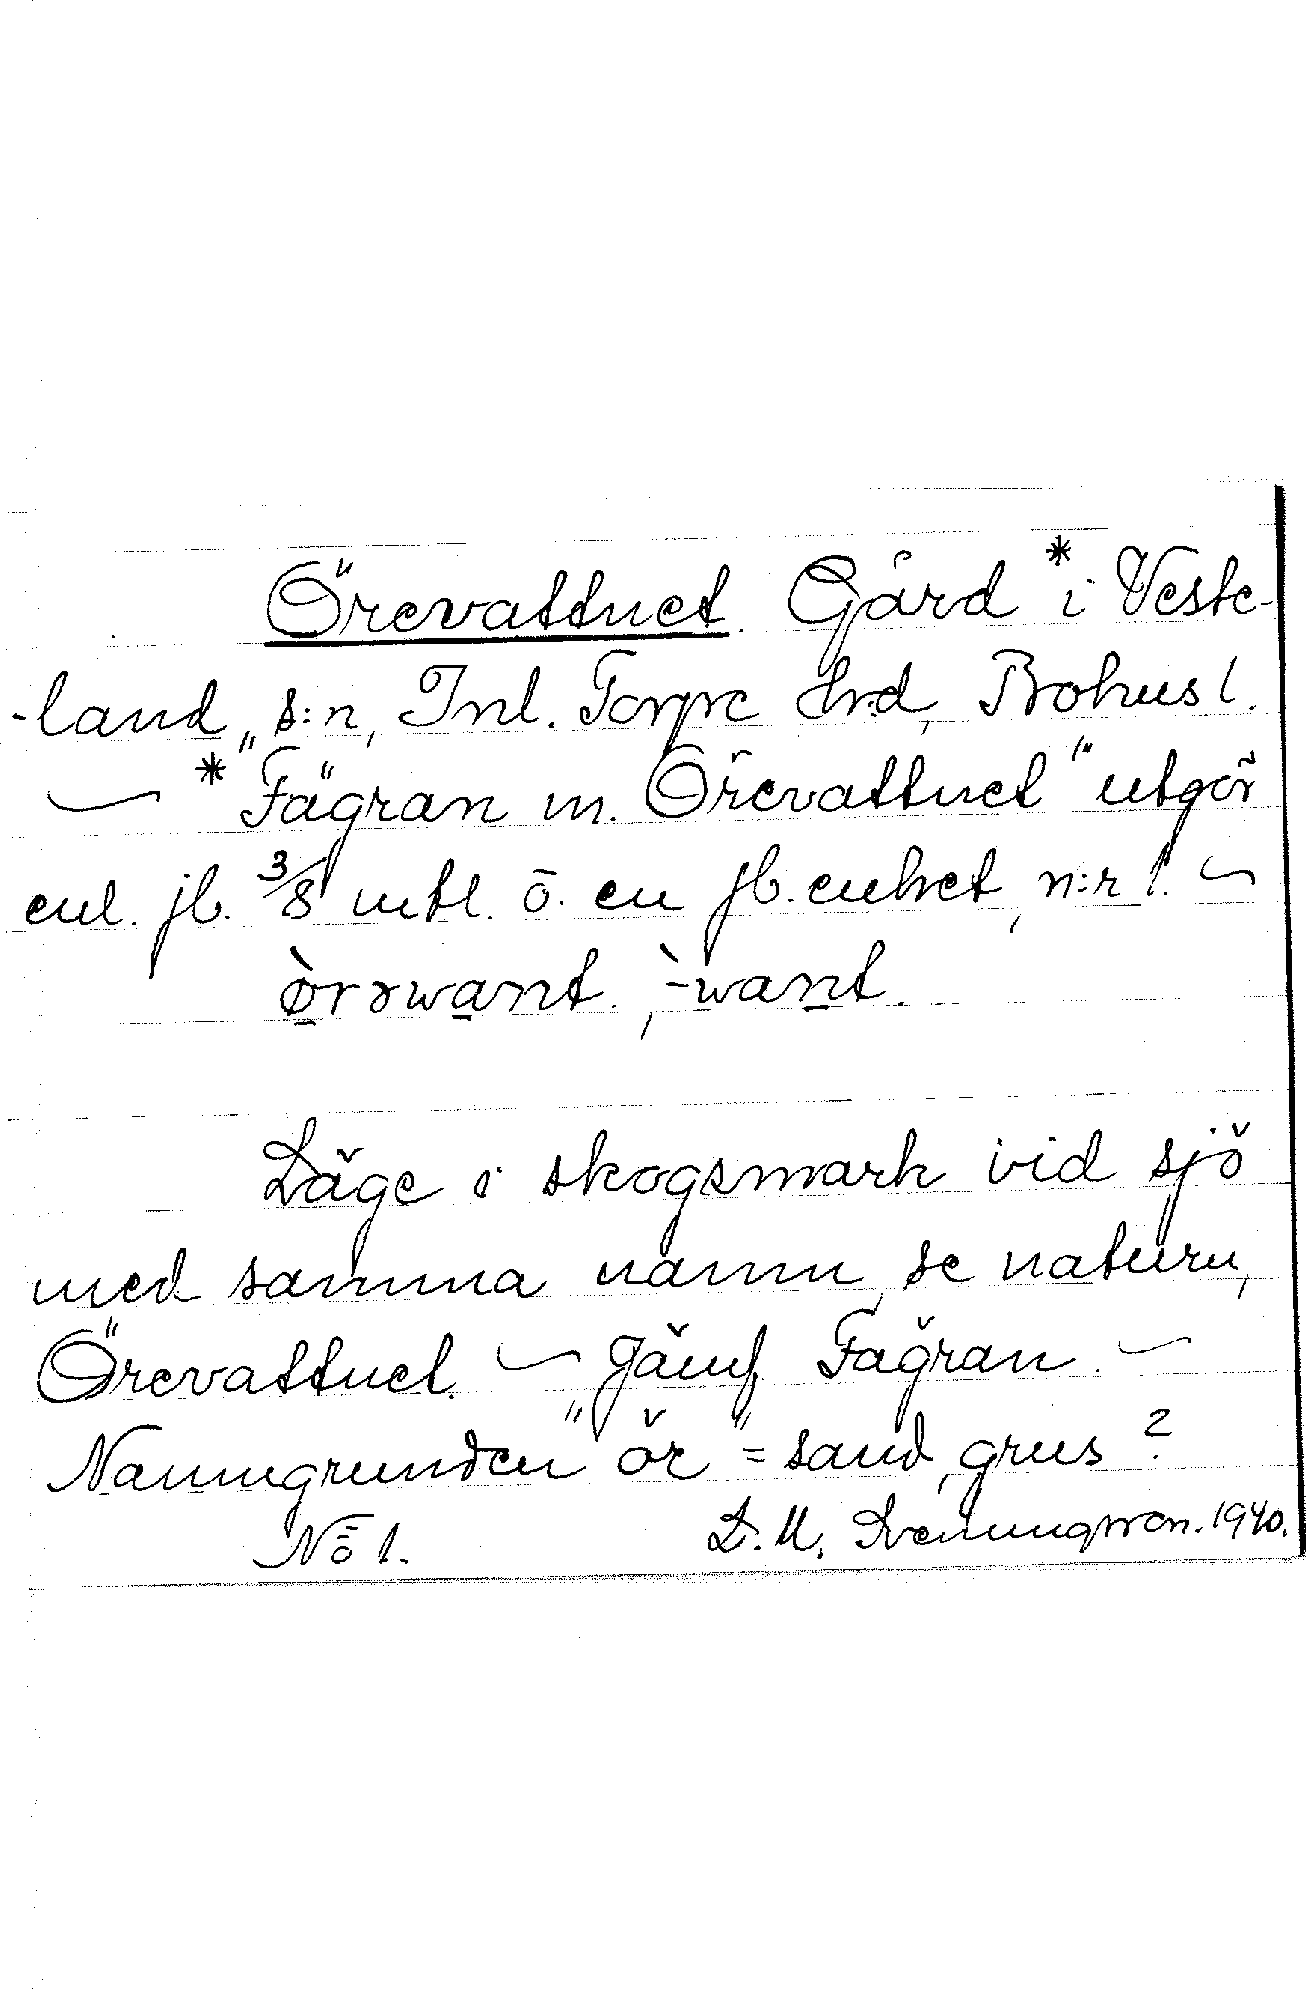 Örevattnet. Gård * i Veste-
-land s:n, Inl. Torpe hrd, Bohusl.
— * "Fägran m. Örevattnet" utgör
enl. jb. 3/8 mtl. o. en jb.enhet, n:r 1. —
ø̀rəwant., -̀want.
Läge i skogsmark vid sjö
med samma namn, se naturn,
Örevattnet. — Jämf. Fägran. —
Namngrunden "ör" = sand, grus?
No 1. D. M. Svenungsson. 1940.